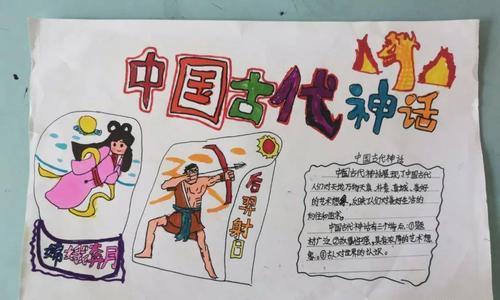 中国古代神话
嫦娥奔月
后羿射日
中国古代神话
中国古代神话展现了中国古代
人们对天地万物天真、朴素、直观、美好
的艺术想象,反映了人们对美好生活的
向往和追求。
中国古代神话有三个特点:①题
材广泛 ②故事性强,具有浓厚的艺术想
象。③古人对世界的认识。